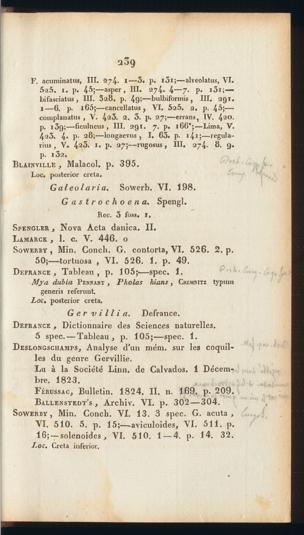 239
F. acuminatus, III. 274. 1—3. p. 131;—alveolatus, VI.
525. 1. p. 45;—asper, III. 274. 4—7. p. 131;—
bifasciatus, III. 328. p. 49;—bulbiformis, III. 291.
1—6. p. 165;—cancellatus, VI. 525. 2. p. 45;—
complanatus, V. 423. 2. 3. p. 27;—errans, IV. 400.
p. 139;—ficulneus, III. 291. 7. p. 166*;—Lima, V.
423. 4. p. 28;—longaevus, I. 63. p. 141;—regula-
rius, V. 423. 1. p. 27;—rugosus, III. 274. 8. 9.
p. 132.
BLAINVILLE, Malacol. p. 395.
Loc. posterior creta.
Galeolaria. Sowerb. VI. 198.
Gastrochoena. Spengl.
Rec. 3 foss. 1.
SPENGLER, Nova Acta danica. II.
LAMARCK, l. c. V. 446. 0
SOWERBY, Min. Conch. G. contorta, VI. 526. 2. p.
50;—tortuosa, VI. 526. 1. p. 49.
DEFRANCE, Tableau, p. 105;—spec. 1.
Mya dubia PENNANT, Pholas hians, CHEMNITZ typum
generis referunt.
Loc. posterior creta.
Gervillia. Defrance.
DEFRANCE, Dictionnaire des Sciences naturelles.
5 spec.—Tableau, p. 105;—spec. 1.
DESLONGSCHAMPS, Analyse d'un mém. sur les coquil-
les du genre Gervillie.
Lu à la Société Linn. de Calvados. 1 Décem-
bre. 1823.
FÉRUSSAC, Bulletin. 1824. II. n. 169. p. 209.
BALLENSTEDT's, Archiv. VI. p. 302—304.
SOWERBY, Min. Conch. VI. 13. 3 spec. G. acuta,
VI. 510. 5. p. 15;—aviculoides, VI. 511. p.
16;—solenoides, VI. 510. 1—4. p. 14. 32.
Loc. Creta inferior.